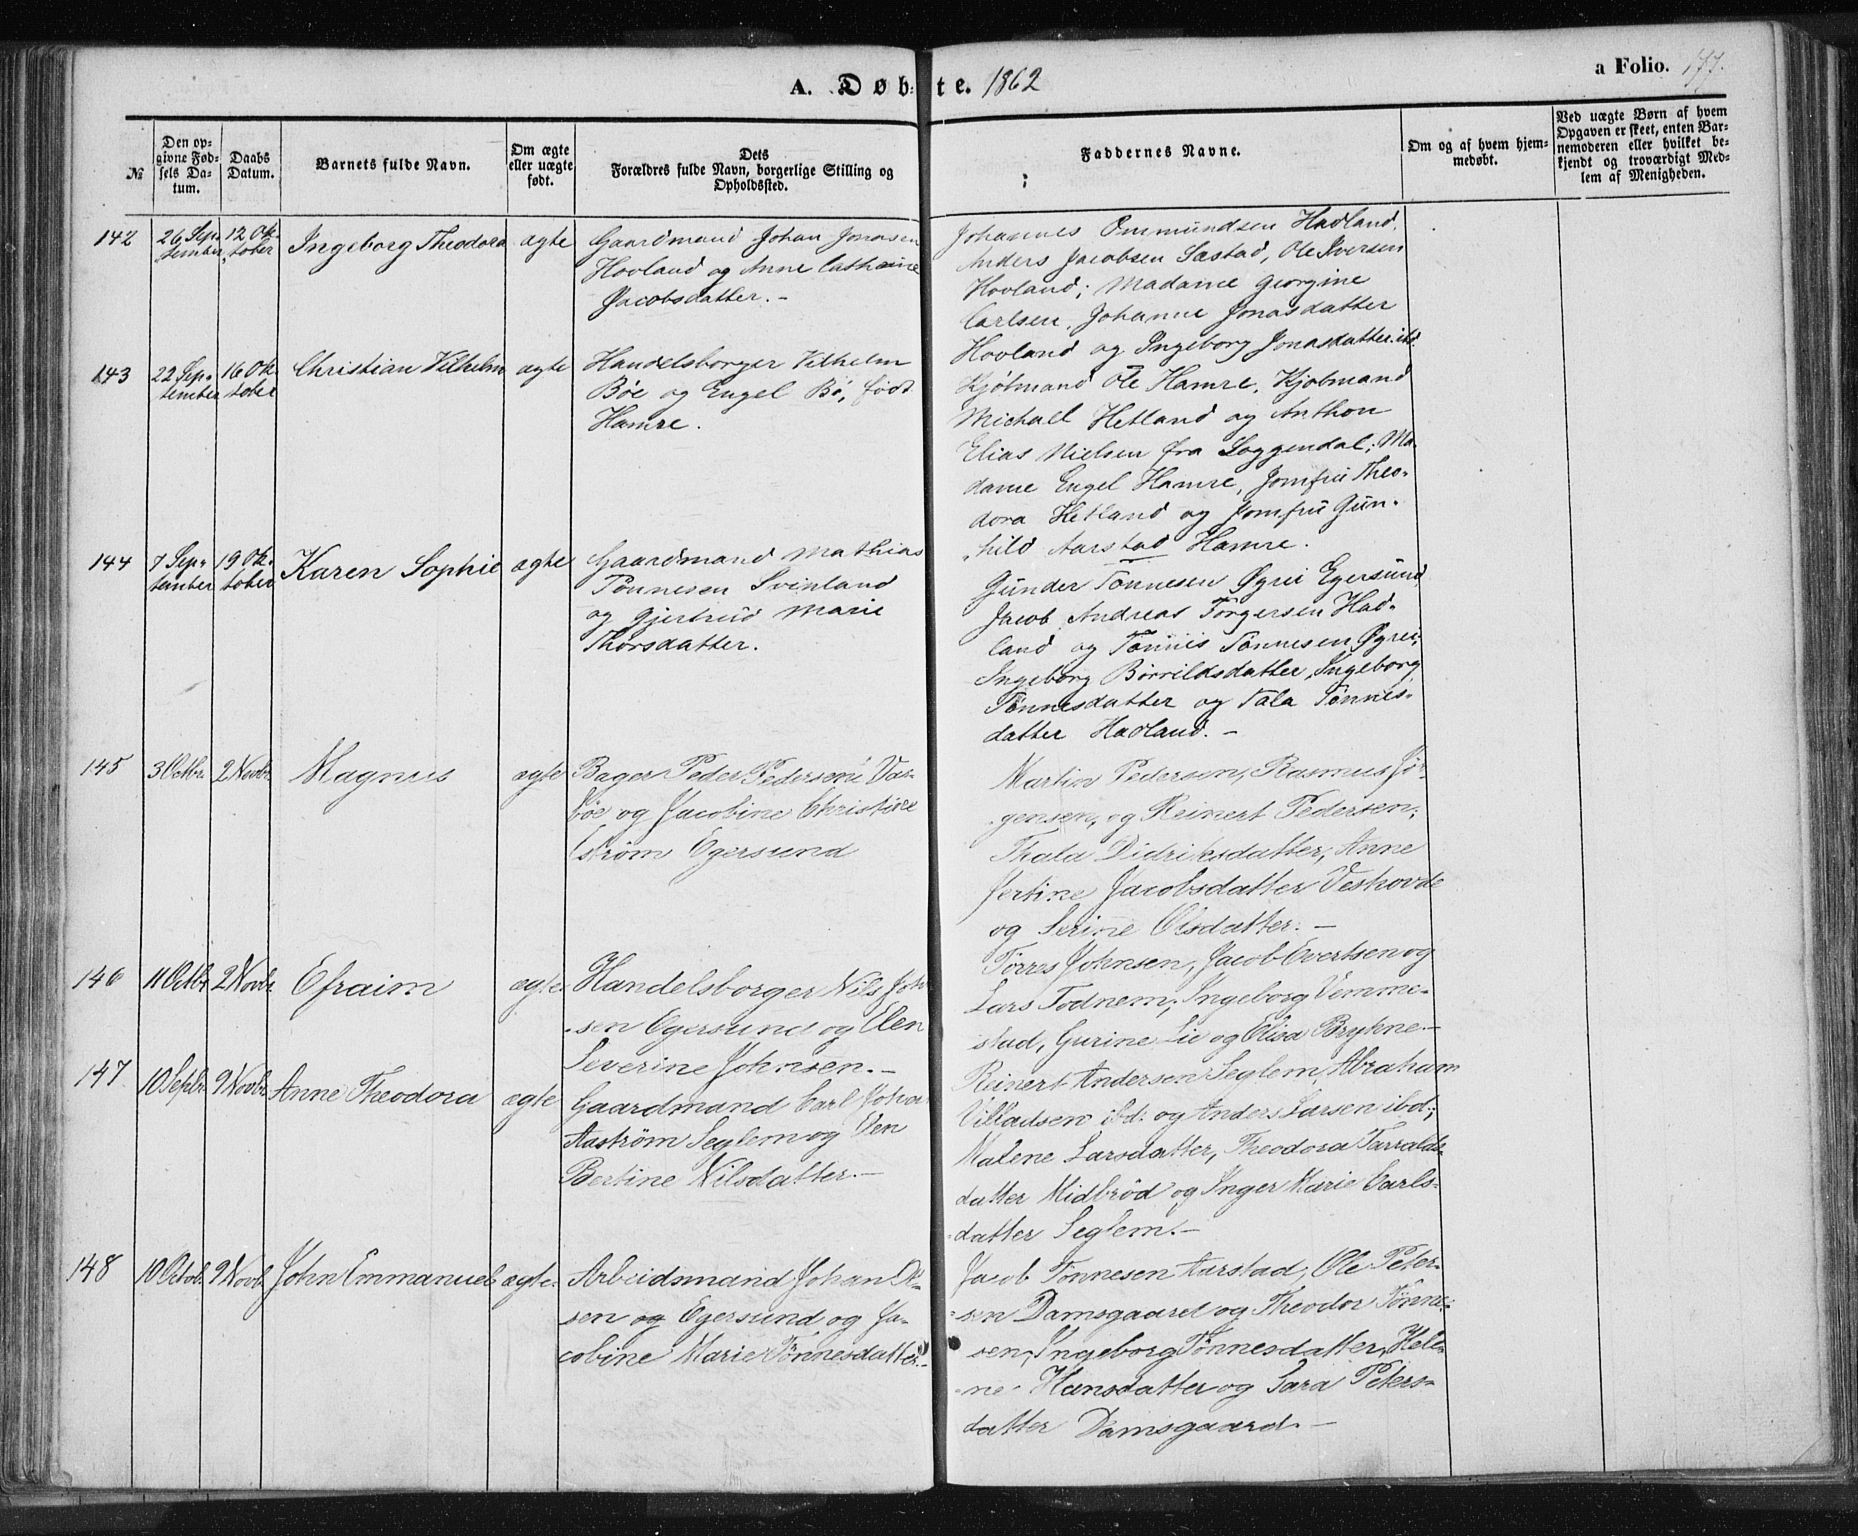 A. Døbte. 1862
a Folio. 177.
№
Den opgivne Fødsels Datum.
Daabs Datum.
Barnets fulde Navn.
Om ægte eller uægte født.
Dets Forældres fulde Navn, borgerlige Stilling og Opholdssted.
Faddernes Navne.
Om og af hvem hjemmedøbt.
Ved uægte Børn af hvem Opgaven er skeet, enten Barnemoderen eller hvilket bekjendt og troværdigt Medlem af Menigheden.
142
26 Sep-
tember
12 Ok-
tober
Ingeborg Theodora
ægte
Gaardmand Johan Jonasen
Hovland og Anne Cathrine
Jacobsdatter. -
Johannes Ommundsen Hadland,
Anders Jacobsen Sæstad, Ole Iversen
Hovland; Madame Georgine
Carlsen, Johanne Jonasdatter
Hovland og Ingeborg Jonasdatter ibd
143
22 Sep-
tember
16 Ok-
tober
Christian Vilhelm
ægte
Handelsborger Vilhelm
Bøe og Engel Bö, født
Hamre.
Kjöbmand Ole Hamre, Kjobmand
Michall Hetland og Anthon
Elias Nielsen fra Soggendal; Ma-
dame Engel Hamre, Jomfru Theo-
dora Hetland og Jomfru Gun-
hild Aarstad Hamre.
144
7 Sep-
tember
19 Ok-
tober
Karen Sophie
ægte
Gaardmand Mathias
Tönnesen Svinland
og Gjertrud Marie
Thorsdatter.
Gunder Tonnesen Øgrei Egersund
Jacob Andreas Torgersen Had-
land og Tönnis Tönnesen Øgrei;
Ingeborg Börrildsdatter, Ingeborg
Tönnesdatter og Tala Tönnis-
datter Hadland. -
145
3 Octbr.
2 Novbr
Magnus
ægte
Bager Peder Pedersen i Var-
böe og Jacobine Christine
Egersund
Martin Pedersen, Rasmus Jör-
gensen, og Reinert Pedersen;
Thala Didriksdatter, Anne
Jertine Jacobsdatter Veshovde
og Serine Olsdatter. -
146
11 Octbr
2 Novbr.
Efraim
ægte.
Handelsborger Nils John-
sen Egersund og Elen
Severine Johnsen. -
Törres Johnsen, Jacob Evertsen og
Lars Todnem; Ingeborg Vemme-
stad, Gurine Lie og Elisa Brykne. -
147
10 Septbr.
9 Novbr.
Anne Theodora
ægte
Gaardmand Carl Johan
Aaström Seglem og Elen
Bertine Nilsdatter. -
Reinert Andersen Seglem, Abraham
Villadsen ibd: og Anders Larsen ibd.;
Malene Larsdatter, Theodora Tarralds-
datter Midbröd og Inger Marie Carls-
datter Seglem. -
148
10 Octob.
9 Novb.
John Emmanuel
ægte.
Arbeidsmand Johan Ol-
sen og Egersund og Ja-
cobine Marie Tönnesdatter. -
Jacob Tönnesen Aarstad, Ole Peter-
sen Damsgaard og Theodor Tönne-
sen; Ingeborg Tönnesdatter, Hele-
ne Hansdatter og Sara Peters-
datter Damsgaard. -